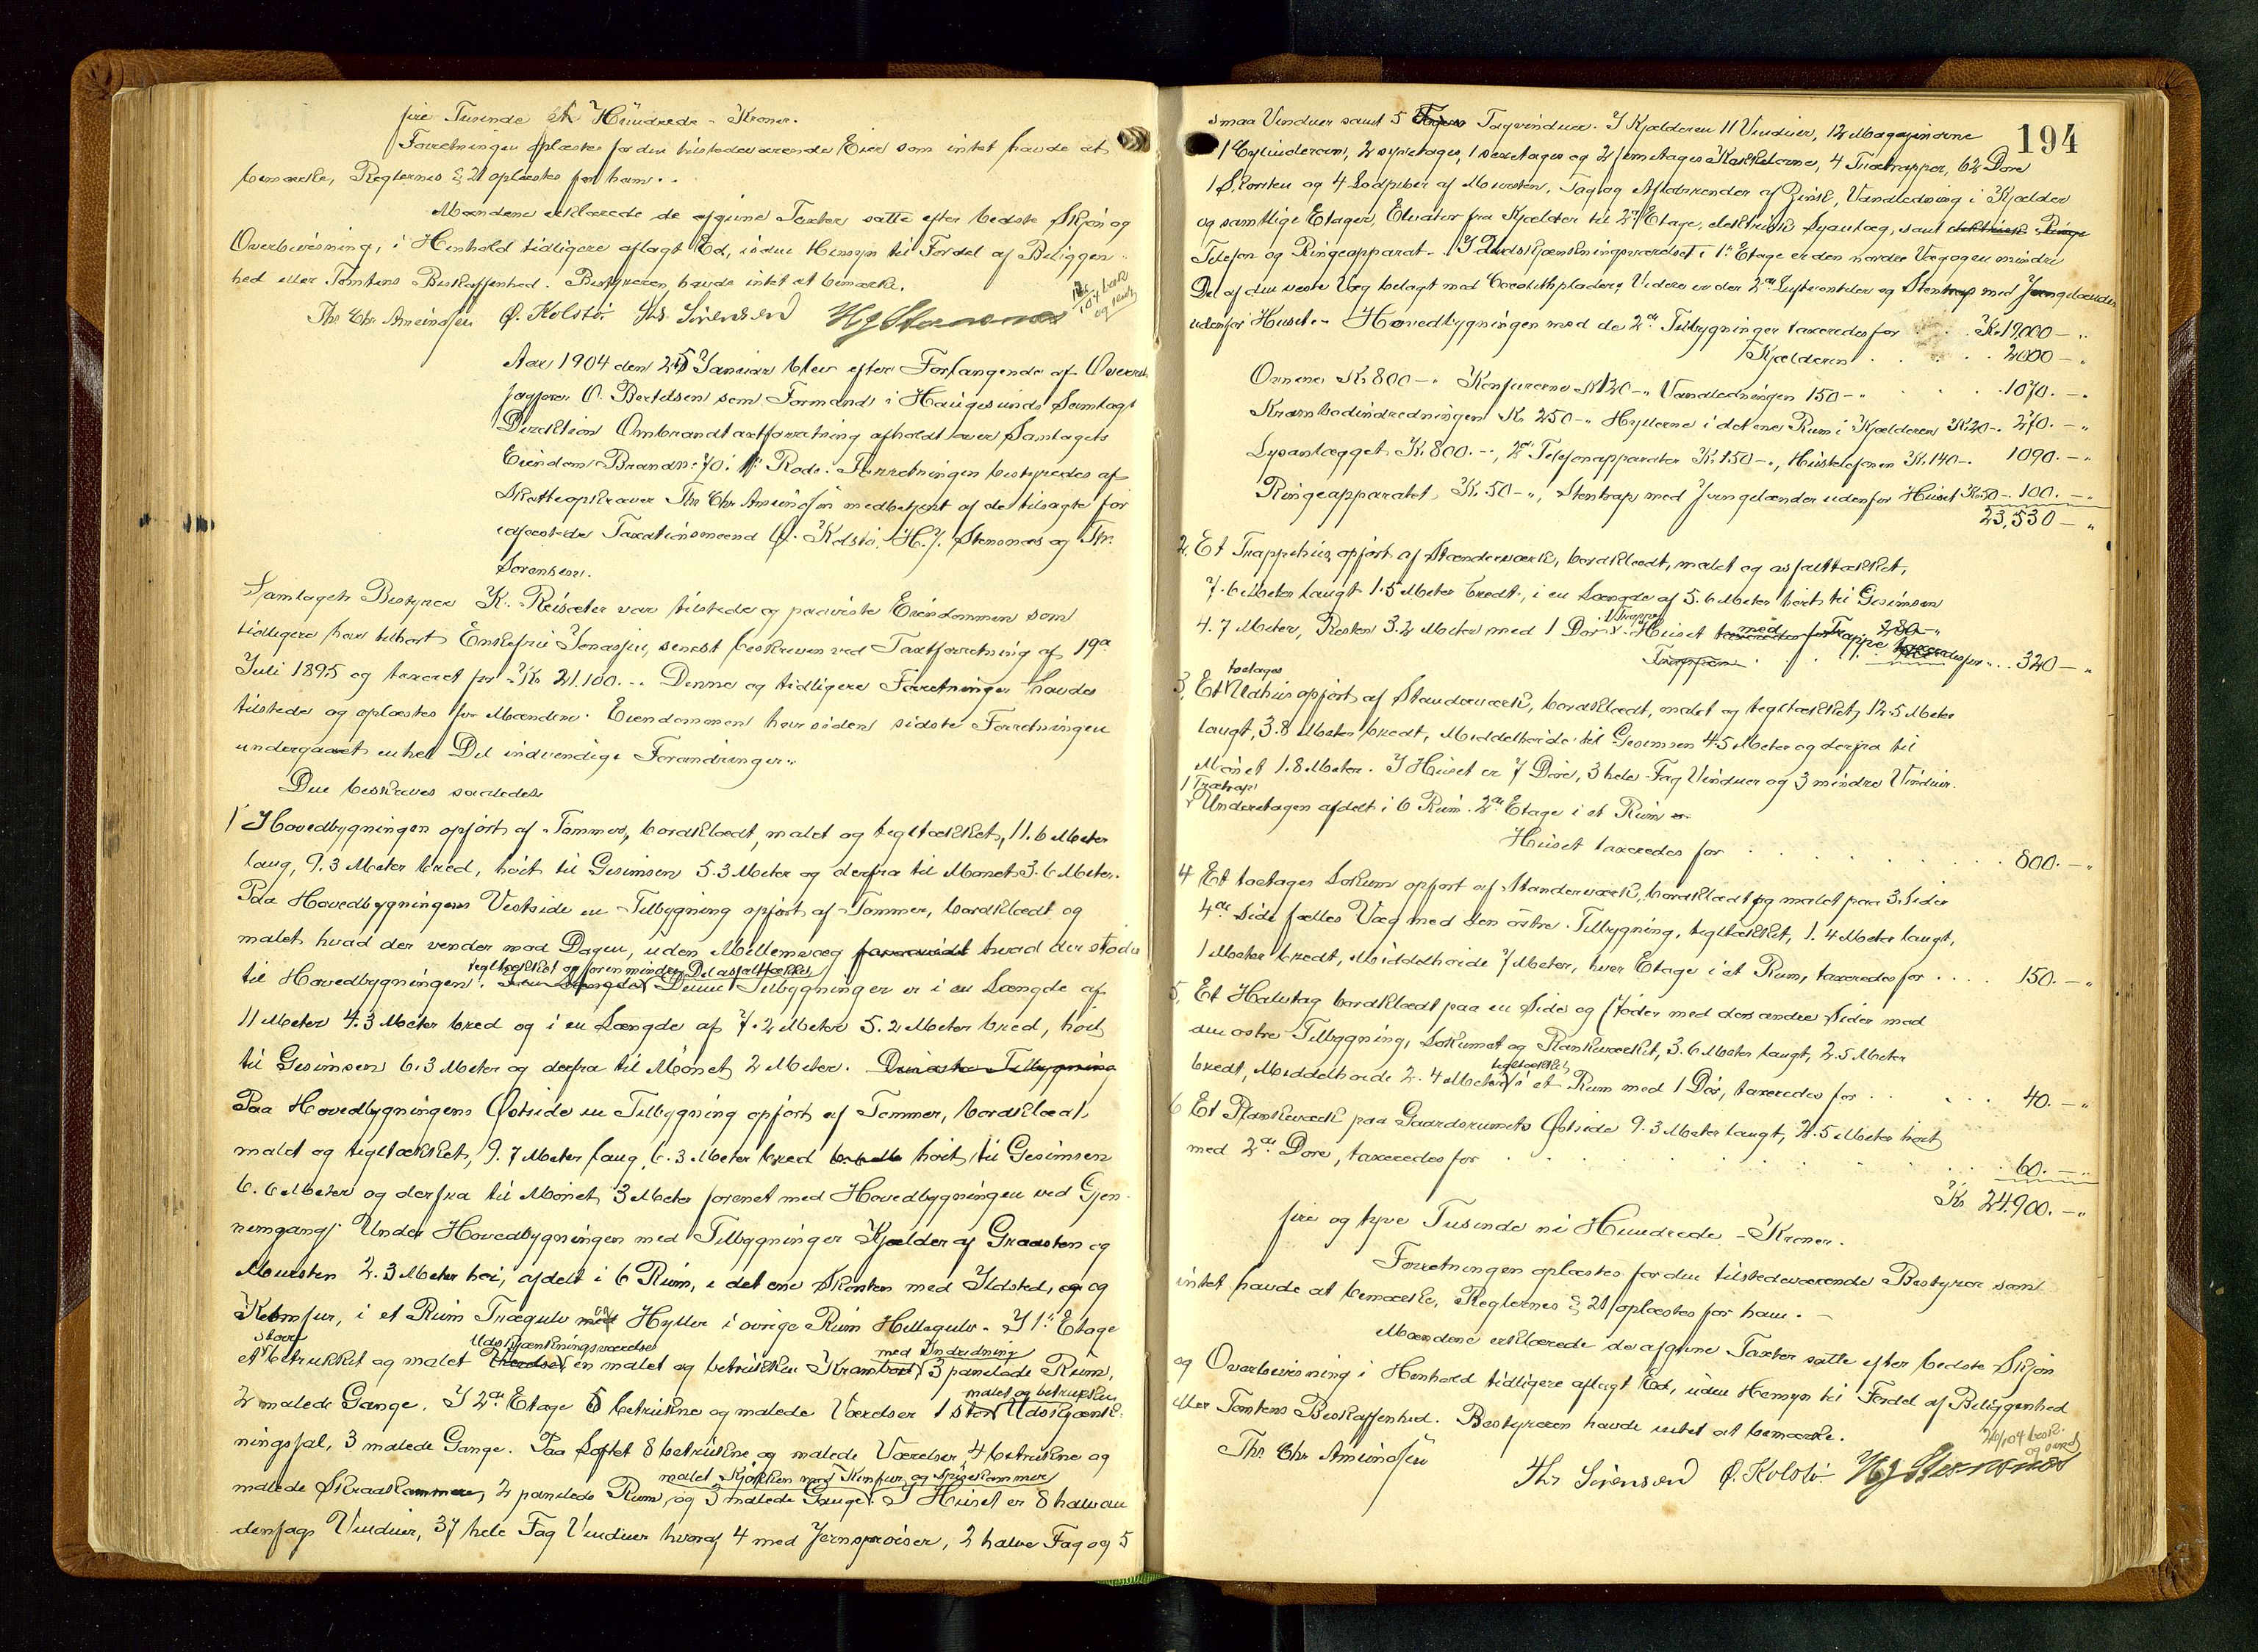 fire Tusinde et Hundrede - Kroner.
Forretningen oplæstes for den tilstedeværende Eier som intet havde at
bemærke, Reglernes § 21 oplæstes for ham. -
Mændene erklærede de afgivne Taxter satte efter bedste Skjøn og
Overbevisning, i Henhold tidligere aflagt Ed, uden Hensyn til Fordel af Beliggen-
hed eller Tomtens Beskaffenhed. Bestyreren havde intet at bemærke.
Ths Chr Amundsen Ø. Kolstø Ths. Sörensen HJ Stensnæs
Aar 1904 den 25 Januar blev efter Forlangende af Overrets
sagfører O. Bertelsen som Formand i Haugesunds Samlags
Direktion Ombrandtaxtforretning afholdt over Samlagets
Eiendom Brandn: 70. 1ste Rode. Forretningen bestyredes af
Skatteopkræver Ths Chr Amundsen medbetjent af de tilsagte for
edfæstede Taxationsmænd Ø. Kolstø, H. J. Stensnæs og Ths.
Sørensen.
Samlagets Bestyrer K. Reisæter var tilstede og paaviste Eiendommen som
tidligere har tilhørt Enkefru Jonassen, senest beskreven ved Taxtforretning af 19de
Juli 1895 og taxeret for Kr 21.100. -. Denne og tidligere Forretninger havdes
tilstede og oplæstes for Mændene. Eiendommen har siden sidste Forretningen
undergaaet en hel Del indvendige Forandringer.
Den beskreves saaledes
1 Hovedbygningen opført af Tømmer, bordklædt, malet og tegltækket, 11.6 Meter
lang, 9.3 Meter bred, høit til Gesimsen 5.3 Meter og derfra til Mønet 3.6 Meter.
Paa Hovedbygningens Vestside en Tilbygning opført af Tømmer, bordklædt og
malet hvad der vender mod Dagen, uden Mellemvæg hvad der støder
tegltækket og for en mindre Del asfalttækket
til Hovedbygningen. Denne Tilbygninger er i en Længde af
11 Meter 4.3 Meter bred og i en Længde af 7.2 Meter 5.2 Meter bred, høit
til Gesimsen 6.3 Meter og derfra til Mønet 2 Meter. Den østre Tilbygning
Paa Hovedbygningens Østside en Tilbygning opført af Tømmer, bordklædt,
malet og tegltækket, 9.7 Meter lang, 6.3 Meter bred 6.6 M høit til Gesimsen
6.6 Meter og derfra til Mønet 3 Meter forenet med Hovedbygningen ved Gjen-
nemgang. Under Hovedbygningen med Tilbygninger Kjælder af Graasten og
Mursten 2.3 Meter høi, afdelt i 6 Rum, i det ene Skorsten med Ildsted, og og
Komfur, i et Rum Trægulv og Hylder i øvrige Rum Hellegulv. - I 1ste Etage
stort Udskjænkningsværelse med Indredning
et betrukket og malet Værelse en malet og betrukken Krambod 3 panelede Rum,
malet og betrukken
2 malede Gange. I 2den Etage 5 betrukne og malede Værelser 1 stor Udskjænk-
ningssal, 3 malede Gange. Paa Loftet 8 betrukne og malede Værelser, 4 betrukne og
malet Kjøkken med Komfur og Spisekammer
malede Skraakammere, 2 panelede Rum og 3 malede Gange. I Huset er 8 halvan
densfags Vinduer, 37 hele Fag Vinduer hvoraf 4 med Jernsproiser, 2 halve Fag og 5
194
smaa Vinduer samt 5 Tagvinduer. I Kjælderen 11 Vinduer, 12 Magasinovne
1 Cylinderovn, 2 syvetages, 1 sexetages og 2 femetages Kakkelovne, 4 Trætrapper, 62 Døre
1 Skorsten og 4 Lodpiber af Mursten, Tag og Afløbsrender af Zink, Vandledning i Kjælder
og samtlige Etager, Elevator fra Kjælder til 2den Etage, elektrisk Lysanlæg, samt elektrisk Ringe
Telefon og Ringeapparat. - I Udskjænkningsværelset i 1ste Etage er den nordre Væg og en mindre
Del af den vestre Væg belagt med plader, Videre er der 2de Luftventiler og Stentrap med Jerngelænder
udenfor Huset. - Hovedbygningen med de 2de Tilbygninger taxeredes for Kr. 19,000 - "
Kjælderen 2000 - "
Ovnene Kr 800 - " Komfurerne Kr 120 - " Vandledningen 150 - " 1070. - "
Krambodindredningen Kr 250 - " Hyllerne i det ene Rum i Kjælderen Kr 20 - . 270. - "
Lysanlægget Kr. 800. - ", 2de Telefonapparater Kr 150 - ", Hustelefonen Kr. 140 - . 1090. - "
Ringeapparatet Kr. 50 - ", Stentrap med Jerngelænder udenfor Huset Kr 50 - . 100. - "
23,530 - "
2. Et Trappehus opført af Stænderværk, bordklædt, malet og asfalttækket,
7.6 Meter langt 1.5 Meter bredt, i en Længde af 5.6 Meter høit til Gesimsen
1 Trappe
4.7 Meter, Resten 3.2 Meter med 1 Dør. Huset med Trappe taxeredes for 280 - " 320 - "
Trappen
toetages
3. Et Udhus opført af Stænderværk, bordklædt, malet og tegltækket, 12.5 Meter
langt, 3.8 Meter bredt, Middelhøide til Gesimsen 4.5 Meter og derfra til
Mønet 1.8 Meter. I Huset er 7 Døre, 3 hele Fag Vinduer og 3 mindre Vinduer.
1 Trætrap
Underetagen afdelt i 6 Rum. 2den Etage i et Rum
Huset taxeredes for 800. - "
4 Et toetages Lokum opført af Stænderværk, bordklædt og malet paa 3 Sider
4de Side fælles Væg med den østre Tilbygning, tegltækket, 1.4 Meter langt,
1 Meter bredt, Middelhøide 7 Meter, hver Etage i et Rum, taxeredes for 150. - "
5. Et Halvtag bordklædt paa en Side og støder med dens andre Sider mod
den østre Tilbygning, Lokumet og Plankeværket, 3.6 Meter langt, 2.5 Meter
tegltækket
bredt, Middelhøide 2.4 Meter i et Rum med 1 Dør, taxeredes for 40. - "
6 Et Plankeværk paa Gaardsrummets Østside 9.3 Meter langt, 2.5 Meter høit
med 2de Døre, taxeredes for 60. - "
Kr 24.900. - "
fire og tyve Tusinde ni Hundrede - Kroner.
Forretningen oplæstes for den tilstedeværende Bestyrer som
intet havde at bemærke, Reglernes § 21 oplæstes for ham. -
Mændene erklærede de afgivne Taxter satte efter bedste Skjøn
og Overbevisning i Henhold tidligere aflagt Ed, uden Hensyn til Fordel af Beliggenhed
eller Tomtens Beskaffenhed. Bestyreren havde intet at bemærke.
Ths Chr Amundsen Ths Sörensen Ø. Kolstø HJ Stensnæs